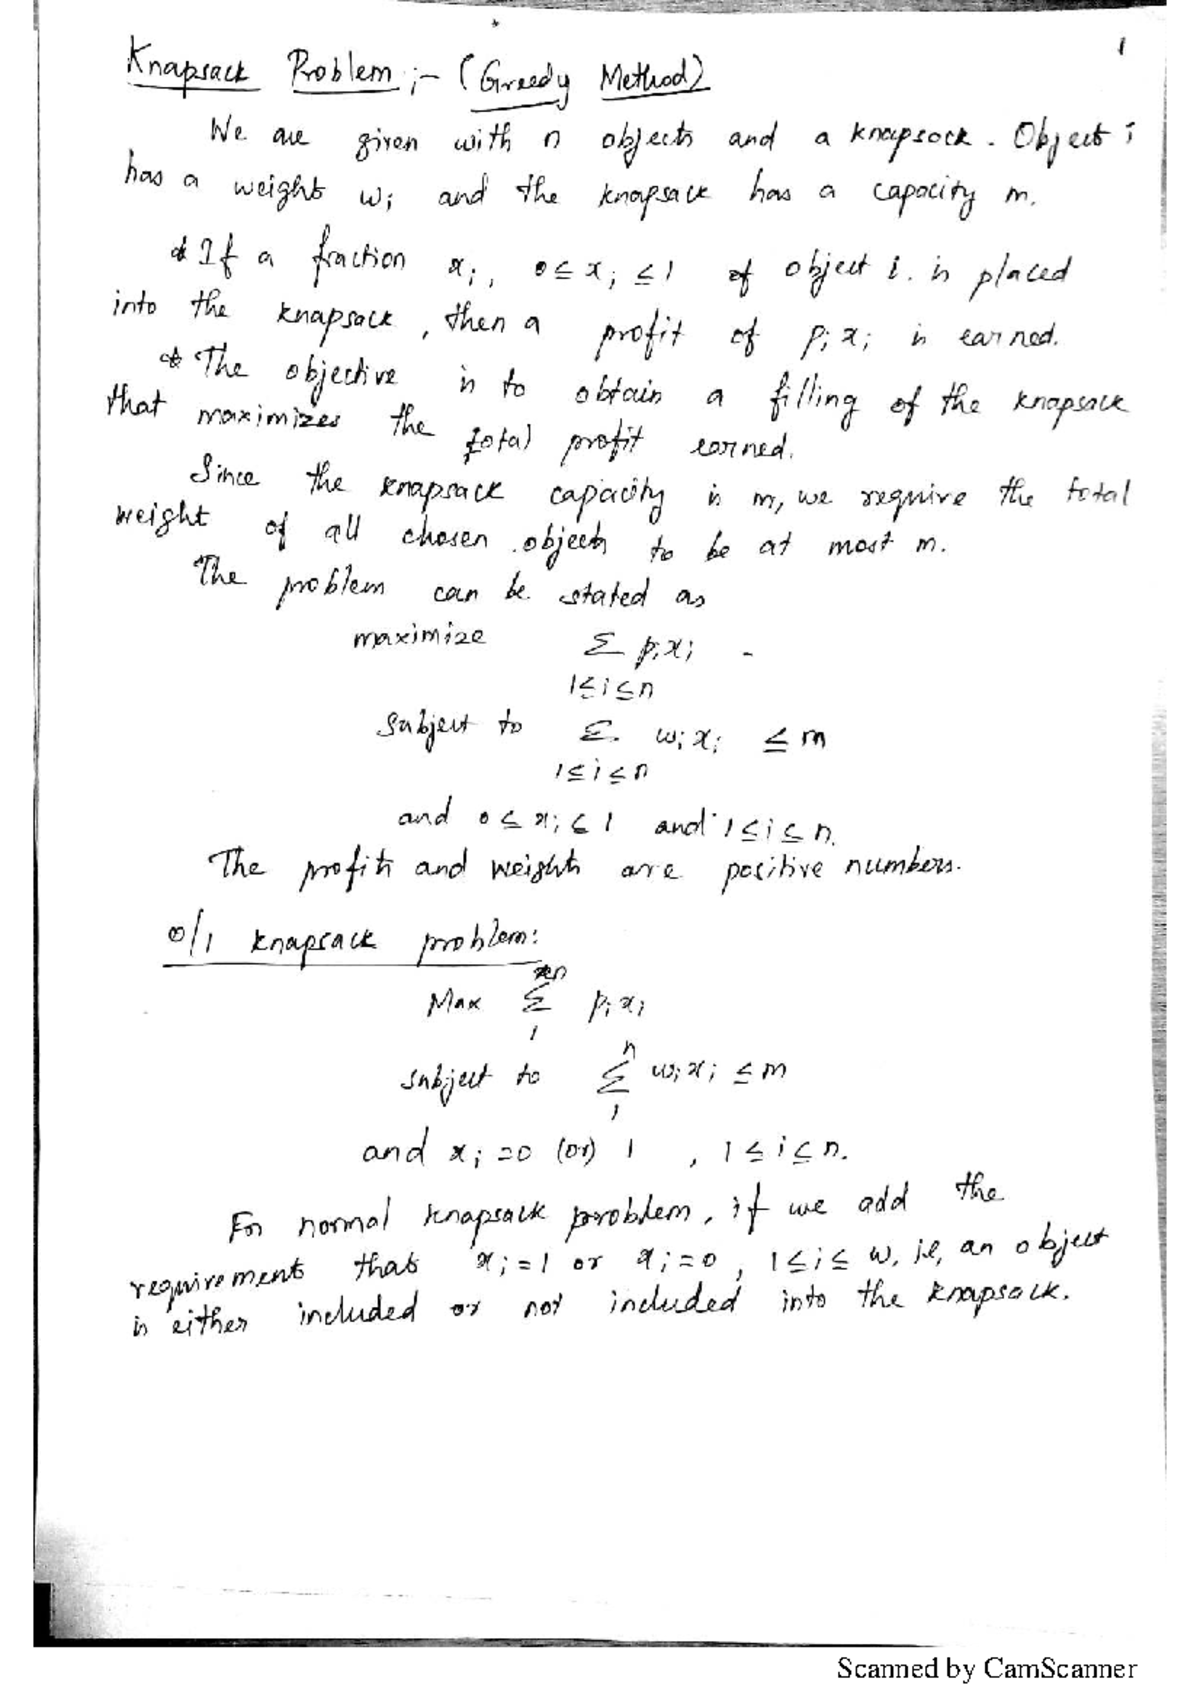 1
Knapsack Problem :- (Greedy Method)
We are given with n objects and a knapsack. Object i
has a weight wi and the knapsack has a capacity m.
* If a fraction xi, 0 ≤ xi ≤ 1 of object i. is placed
into the knapsack, then a profit of pixi is earned.
* The objective is to obtain a filling of the knapsack
that maximizes the total profit earned.
Since the knapsack capacity is m, we require the total
weight of all chosen objects to be at most m.
The problem can be stated as
maximize Σ pixi -
1≤i≤n
Subject to Σ wixi ≤ m
1≤i≤n
and 0 ≤ xi ≤ 1 and 1≤i≤n.
The profits and weights are positive numbers.
0/1 knapsack problem:
n
Max Σ pixi
1
n
subject to Σ wixi ≤ m
1
and xi =0 (or) 1 , 1≤i≤n.
For normal knapsack problem, if we add the
requirement that xi=1 or xi=0, 1≤i≤ w, ie, an object
is either included or not included into the knapsack.
Scanned by CamScanner